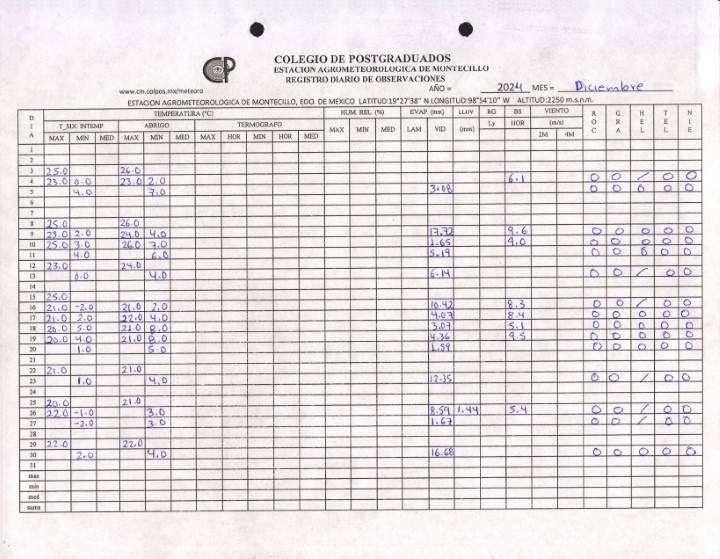 COLEGIO DE POSTGRADUADOS
ESTACION AGROMETEOROLOGICA DE MONTECILLO
REGISTRO DIARIO DE OBSERVACIONES
www.cm.colpos.mx/meteoro AÑO = 2024 MES = Diciembre
ESTACION AGROMETEOROLOGICA DE MONTECILLO, EDO. DE MEXICO LATITUD:19°27'38" N LONGITUD:98°54'10" W ALTITUD:2250 m.s.n.m.
DIA TEMPERATURA (°C) HUM. REL. (%) EVAP. (mm) LLUV RG BS VIENTO ROC GRA HEL TEL NIE
T_SIX: INTEMP ABRIGO TERMOGRAFO Ly HOR (m/s)
MAX MIN MED MAX MIN MED MAX HOR MIN HOR MED MAX MIN MED LAM VID (mm) 2M 4M
1
2
3 25.0 26.0
4 23.0 0.0 23.0 2.0 6.1 0 0 / 0 0
5 4.0 7.0 3.08 0 0 0 0 0
6
7
8 25.0 26.0
9 23.0 2.0 24.0 4.0 17.72 9.6 0 0 0 0 0
10 25.0 3.0 26.0 7.0 1.65 9.0 0 0 0 0 0
11 4.0 6.0 5.19 0 0 0 0 0
12 23.0 24.0
13 0.0 4.0 6.14 0 0 / 0 0
14
15 25.0
16 21.0 -2.0 21.0 2.0 10.42 8.3 0 0 / 0 0
17 21.0 2.0 22.0 4.0 4.07 8.4 0 0 0 0 0
18 20.0 5.0 21.0 8.0 3.07 5.1 0 0 0 0 0
19 20.0 4.0 21.0 8.0 4.36 9.5 0 0 0 0 0
20 1.0 5.0 1.59 0 0 0 0 0
21
22 21.0 21.0
23 1.0 4.0 12.35 0 0 / 0 0
24
25 20.0 21.0
26 22.0 -1.0 3.0 8.59 1.44 5.4 0 0 / 0 0
27 -2.0 3.0 1.67 0 0 / 0 0
28
29 22.0 22.0
30 2.0 4.0 16.68 0 0 0 0 0
31
max
min
med
suma